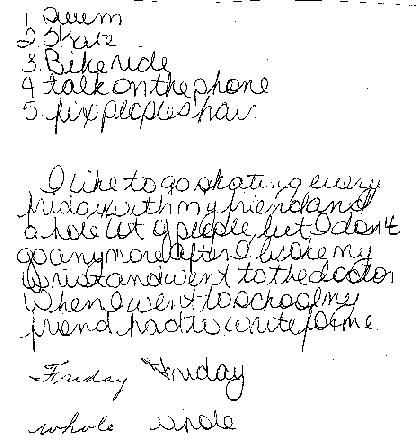 1. Swim
2. Skate
3. Bike ride
4 talk on the phone
5. fix peoples hair
I like to go skating every
friday with my friend and
a hole lot of people but I don't
go any more after I broke my
wrist and went to the doctor
When I went to school my
friend had to write for me.
Friday Friday
whole whole